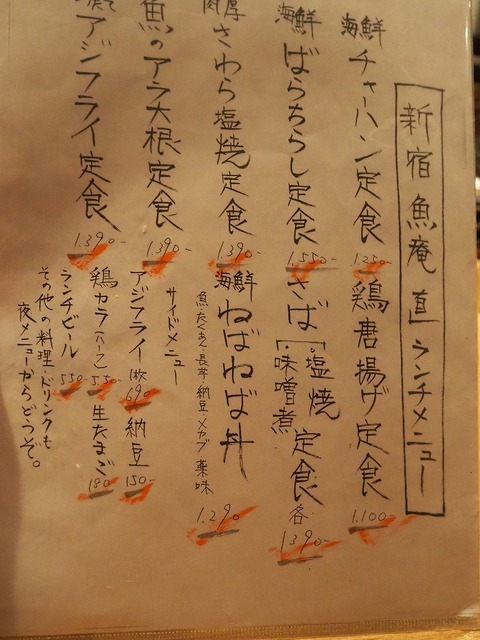 新宿 魚庵 直 ランチメニュー
海鮮チャーハン定食 1.250-
鶏唐揚げ定食 1.100-
海鮮ばらちらし定食 1.550-
さば[・塩焼 ・味噌煮 定食 各 1390-
肉厚さわら塩焼定食 1.390-
海鮮ねばねば丼
魚・たくあん・長芋・納豆・メカブ 薬味 1.290
魚のアラ大根定食 1.390-
サイドメニュー
アジフライ 1枚 690
納豆 150-
アジフライ定食 1.390-
鶏カラ(ハーフ) 550-
生たまご 180
ランチビール 550
その他の料理・ドリンクも
夜メニューからどうぞ。